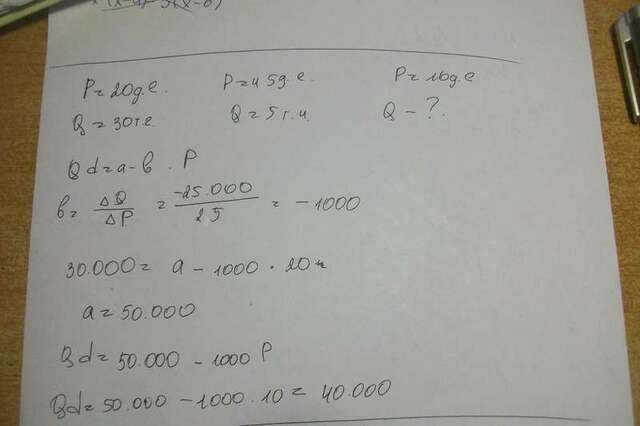 P = 20д.е. P = 45д.е. P = 10д.е
Q = 30т.е. Q = 5т.и. Q - ?
Qd = a - b · P
b = ΔQ/ΔP = -25.000/25 = -1000
30.000 = a - 1000 · 20
a = 50.000
Qd = 50.000 - 1000 P
Qd = 50.000 - 1000 · 10 = 40.000